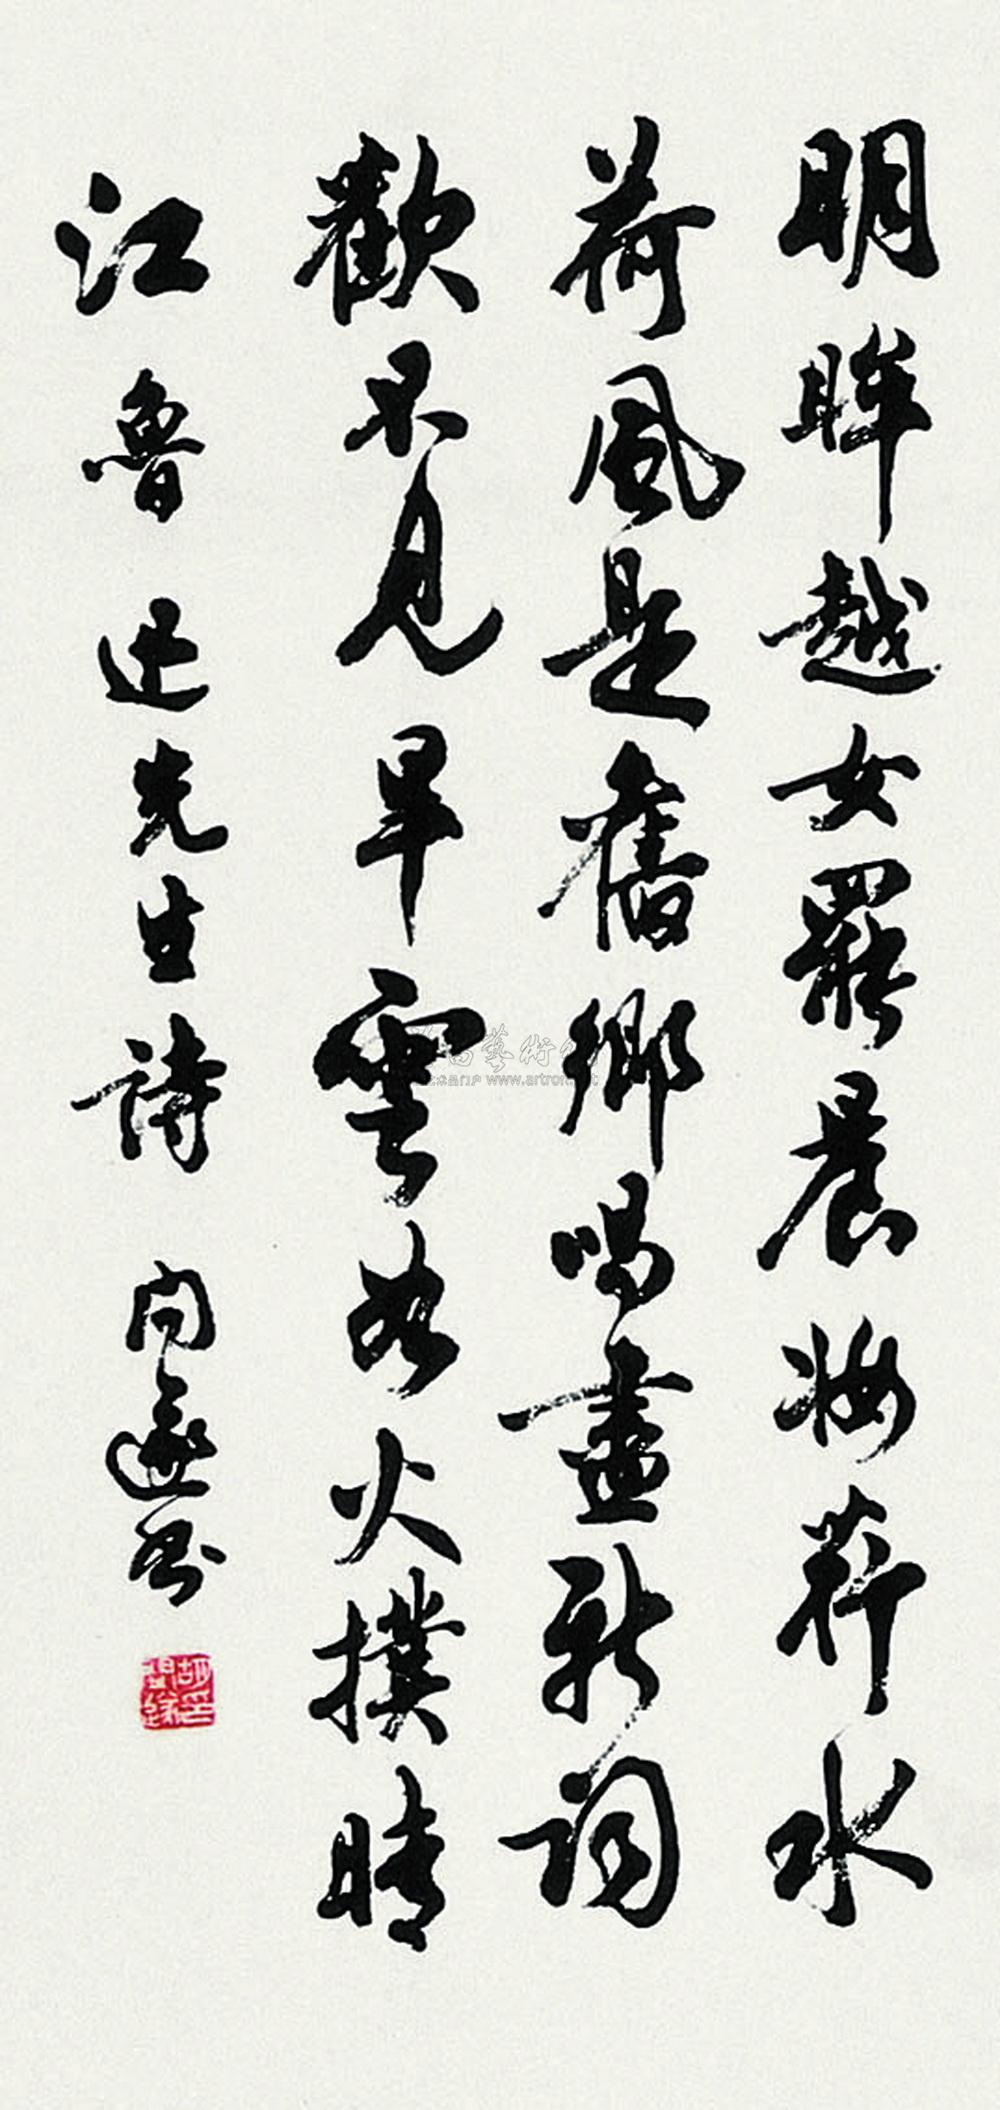 明眸越女罷晨妝荇水
荷風是舊鄉唱盡新詞
歡不見旱雲如火撲晴
江 魯迅先生詩 問遂書
藝術
www.artron.net